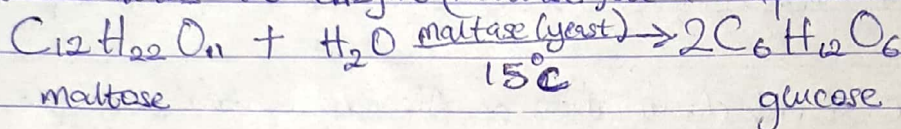 C12H22O11 + H2O maltase (yeast) → 2C6H12O6
15°C
maltose glucose